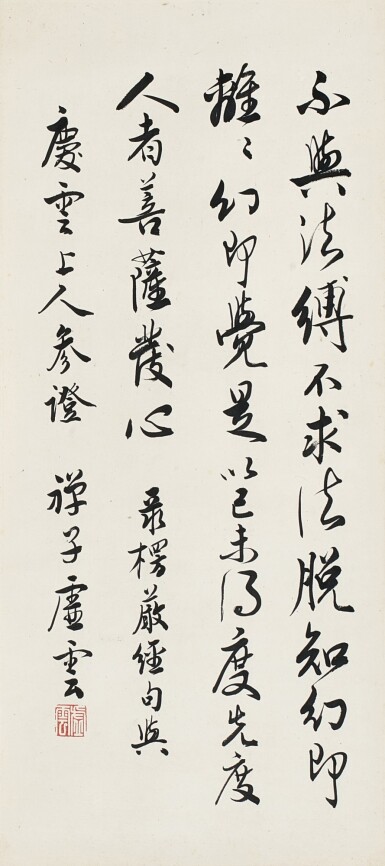 不與法縛不求法脫知幻即
離〻幻即覺是以己未得度先度
人者菩薩發心 最楞嚴經句與
慶雲上人參證 禪子虛雲
虛雲